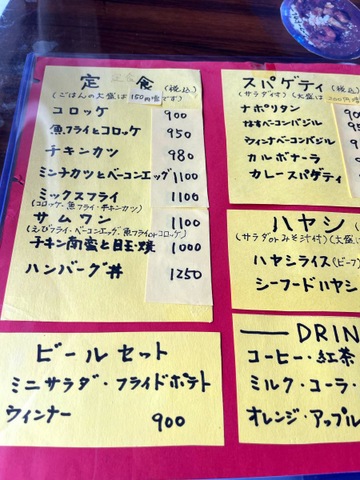 定食(税込)
(ごはんの大盛は150円増です)
コロッケ 900
魚フライとコロッケ 950
チキンカツ 980
ミンチカツとベーコンエッグ 1100
ミックスフライ 1100
(コロッケ、魚フライ・チキンカツ)
サムワン 1100
(えびフライ・ベーコンエッグ、魚フライorコロッケ)
チキン南蛮と目玉焼 1000
ハンバーグ丼 1250
ビールセット
ミニサラダ・フライドポテト
ウィンナー 900
スパゲティ(税込)
(サラダ付)(大盛は200円増
ナポリタン
なすベーコンバジル
ウィンナベーコンバジル
カルボナーラ
カレースパゲティ
ハヤシ
(サラダorみそ汁付)(大盛
ハヤシライス(ビーフ
シーフードハヤシ
DRIN
コーヒー・紅茶
ミルク・コーラ・
オレンジ・アップル